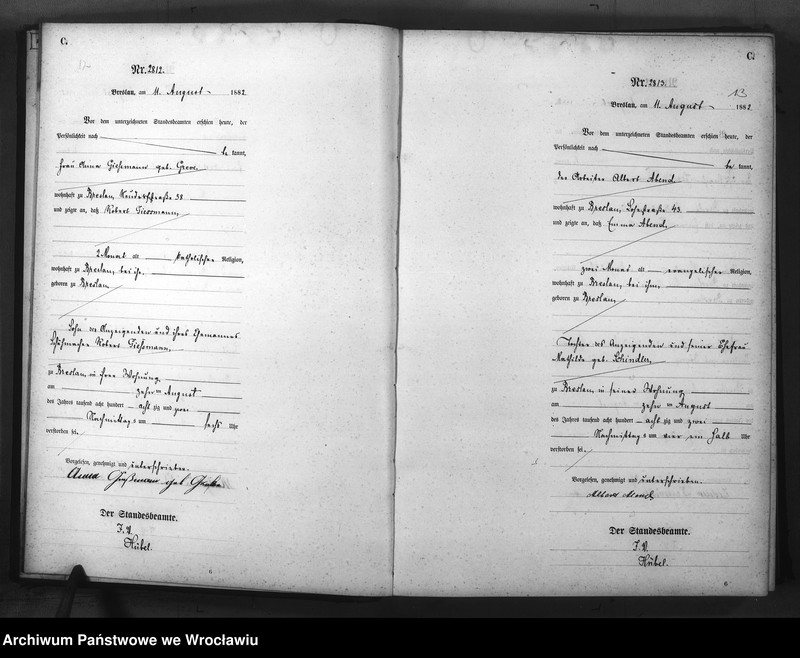 C.
Nr. 2812.
Breslau, am 11. August 1882.
Vor dem unterzeichneten Standesbeamten erschien heute, der
Persönlichkeit nach
be kannt,
Frau Anna Gießmann geb.
wohnhaft zu Breslau, 38
und zeigte an, daß Robert Giessmann,
2 Monat alt katholischer Religion,
wohnhaft zu Breslau, bei ihr,
geboren zu Breslau,
Sohn der Anzeigenden und ihres Ehemannes
Schuhmacher Robert Gießmann,
zu Breslau, in ihrer Wohnung
am zehnten August
des Jahres tausend acht hundert acht zig und zwei
Nachmittags um sechs Uhr
verstorben sei.
Vorgelesen, genehmigt und unterschrieben.
Anna Gießmann geb
Der Standesbeamte.
J. V.
Kübel.
6
C.
13
Nr. 2813.
Breslau, am 11. August 1882.
Vor dem unterzeichneten Standesbeamten erschien heute, der
Persönlichkeit nach
be kannt,
der Arbeiter Albert Abend
wohnhaft zu Breslau, 43.
und zeigte an, daß Emma Abend,
zwei Monat alt evangelischer Religion,
wohnhaft zu Breslau, bei ihm,
geboren zu Breslau,
Tochter des Anzeigenden und seiner Ehefrau
Mathilde geb. Schindler,
zu Breslau, in seiner Wohnung
am zehnten August
des Jahres tausend acht hundert acht zig und zwei
Nachmittags um vier ein halb Uhr
verstorben sei.
Vorgelesen, genehmigt und unterschrieben.
Albert Abend
Der Standesbeamte.
J. V.
Kübel.
6
Archiwum Państwowe we Wrocławiu